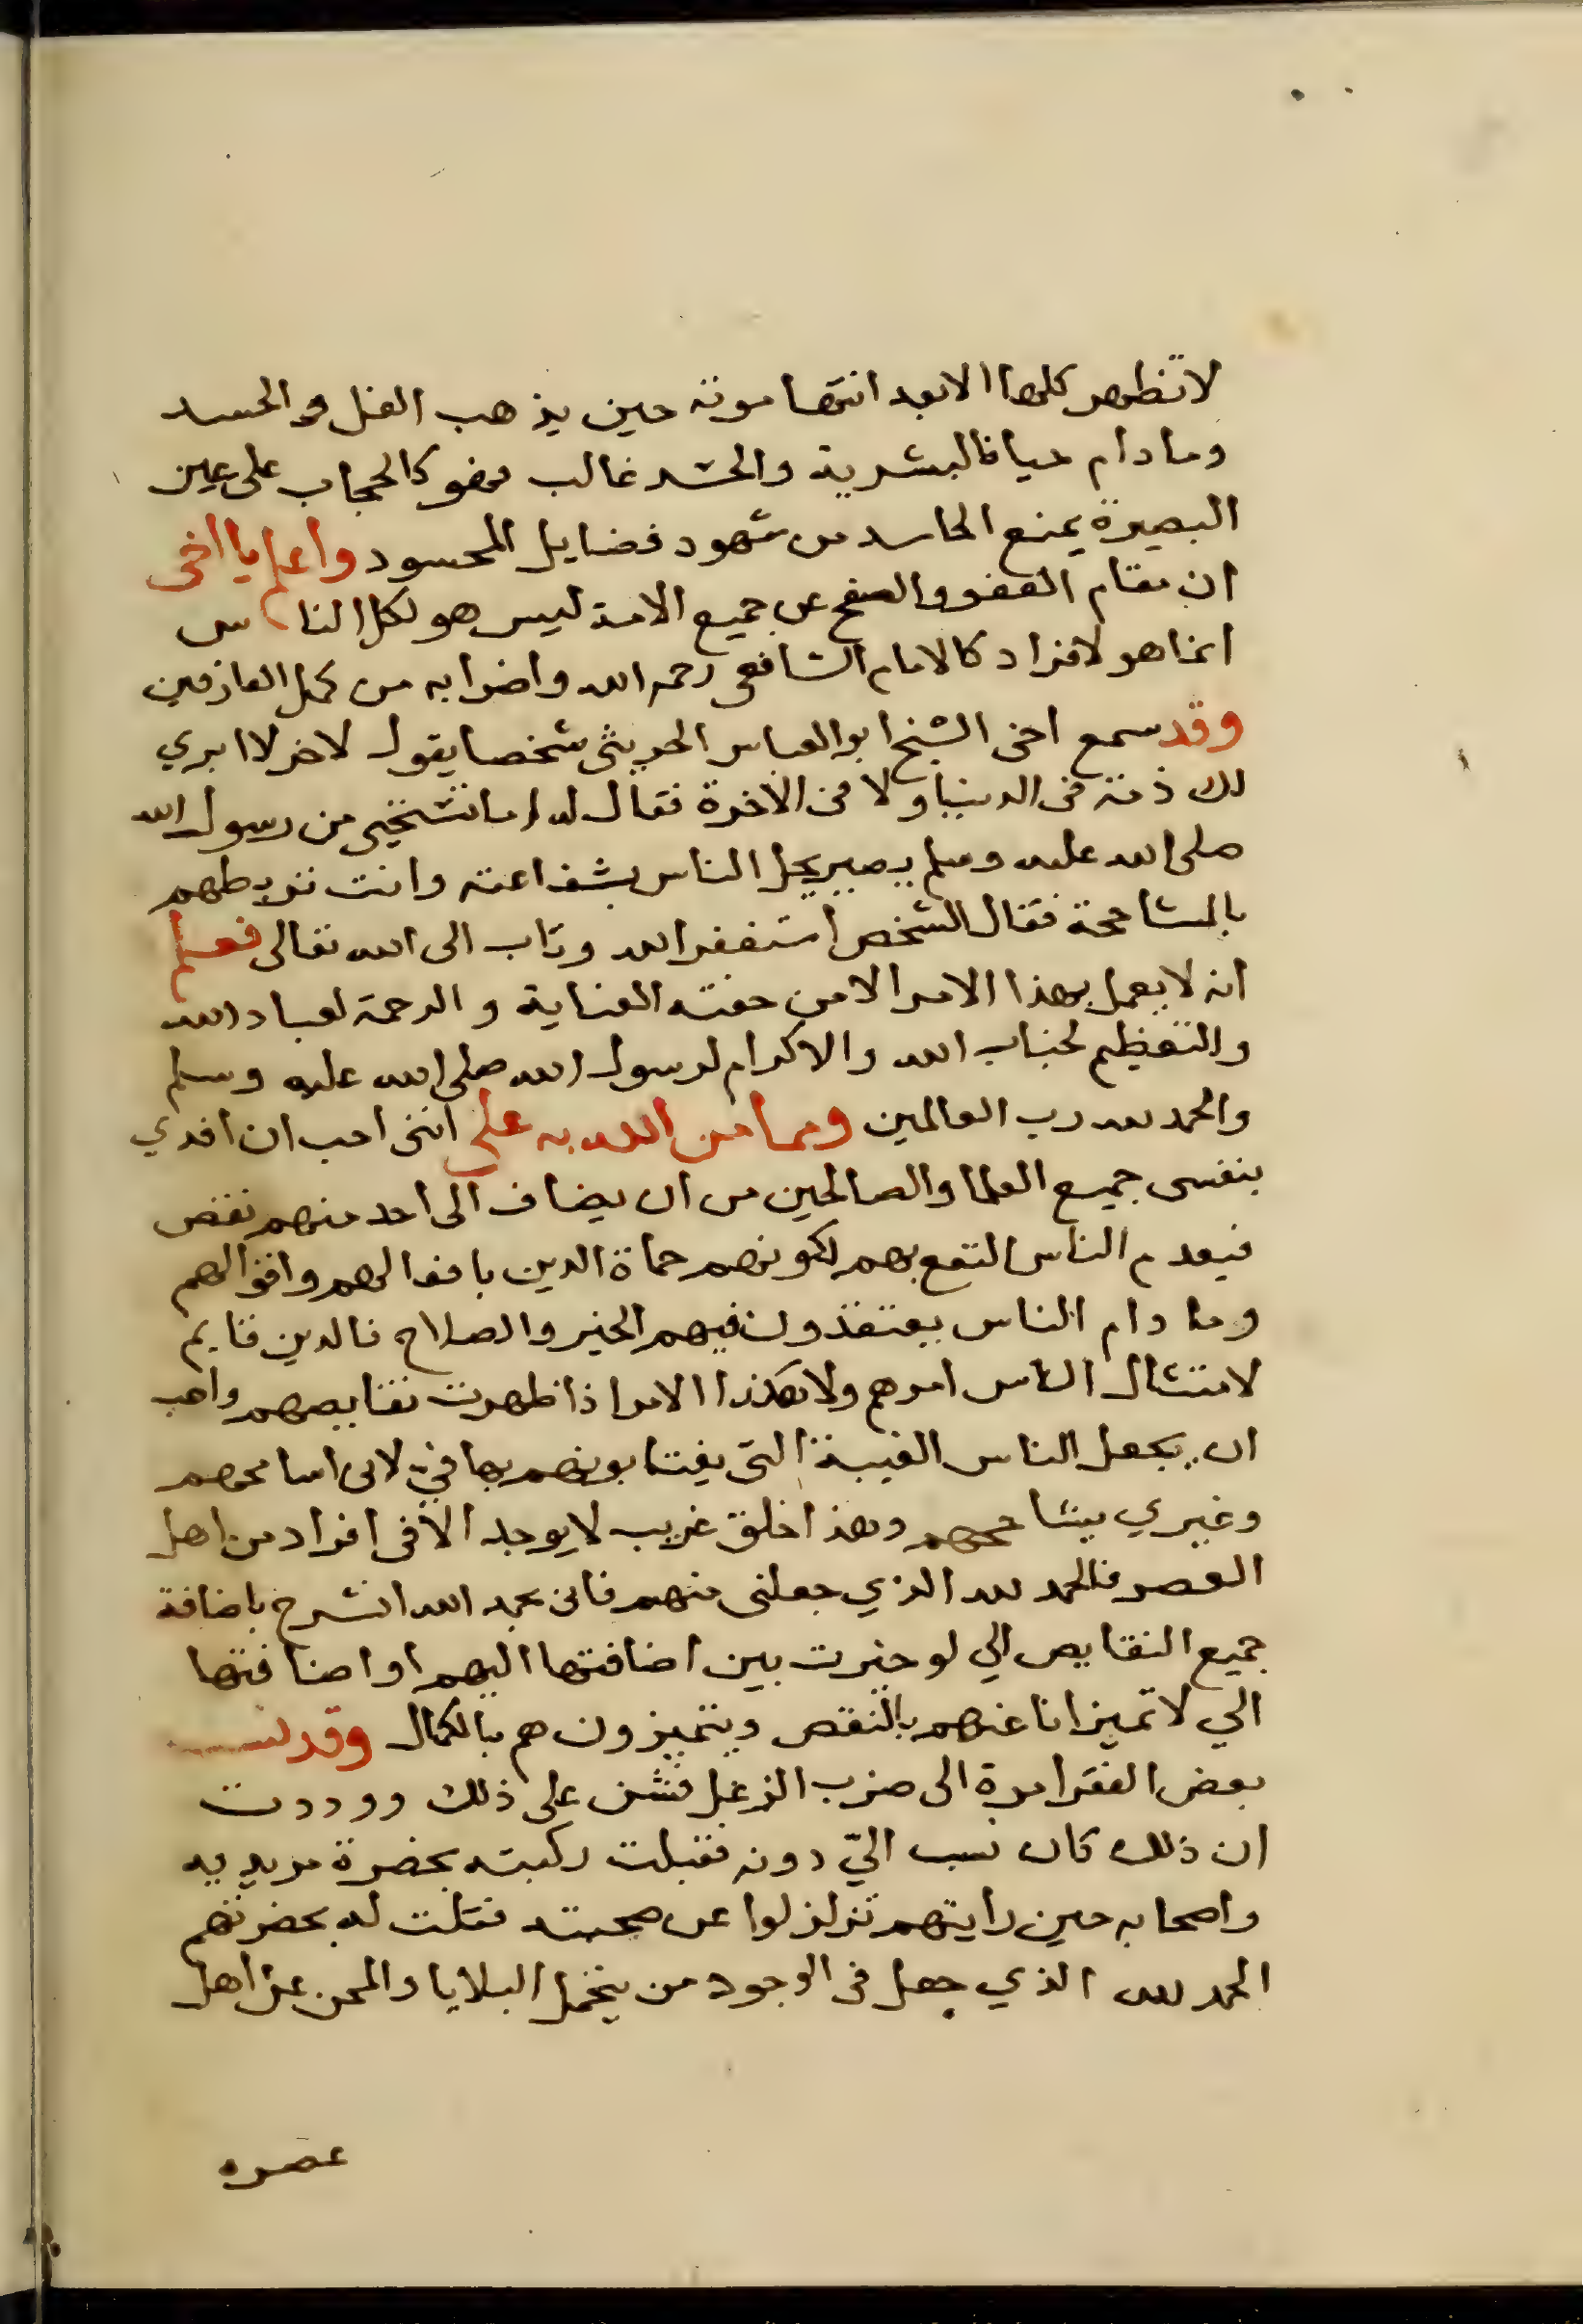 لا تظهر كلها الا بعد انتها موته حين يذهب الغل والحسد
وما دام حيا فالبشرية والحسد غالب فهو كالحجاب على عين
البصيرة يمنع الحاسد من شهود فضايل المحسود واعلم يا اخى
ان مقام العفو والصفح عن جميع الامة ليس هو لكل الناس
انما هو لافراد كالامام الشافعى رحمه الله واضرابه من كمل العارفين
وقد سمع اخى الشيخ ابو العباس الحريثى شخصا يقول لاخر لا ابري
لك ذمة فى الدينا ولا فى الاخرة فقال له اما تستحى من رسول الله
صلى الله عليه وسلم يصير يحل الناس بشفاعته وانت تربطهم
بالمشاححة فقال الشخص استغفر الله وتاب الى الله تعالى فعلم
انه لا يعمل بهذا الامر الا من حفته العناية والرحمة لعباد الله
والتعظيم لجناب الله والاكرام لرسول الله صلى الله عليه وسلم
والحمد لله رب العالمين ومما من الله به على اننى احب ان افدي
بنفسى جميع العلما والصالحين من ان يضاف الى احد منهم نقص
فيعدم الناس النفع بهم لكونهم حماة الدين بافعالهم واقوالهم
وما دام الناس يعتقدون فيهم الخير والصلاح فالدين قايم
لامتثال الناس امرهم ولا هكذا الامر اذا ظهرت نقايصهم واحب
ان يجعل الناس الغيبة التى يغتابونهم بها فيّ لانى اسامحهم
وغيري يشاححهم وهذا خلق غريب لا يوجد الا فى افراد من اهل
العصر فالحمد لله الذي جعلنى منهم فانى بحمد الله انشرح باضافة
جميع النقايص الي لو خيرت بين اضافتها اليهم او اضافتها
الي لا تميز انا عنهم بالنقص ويتميزون هم بالكمال وقد نسب
بعض الفقرا مرة الى ضرب الزغل فشق على ذلك ووددت
ان ذلك كان نسب اليّ دونه فقبلت ركبته بحضرة مريديه
واصحابه حين رايتهم تزلزلوا عن صحبته فقلت له بحضرتهم
الحمد لله الذي جعل فى الوجود من يتحمل البلايا والمحن عن اهل
عصره